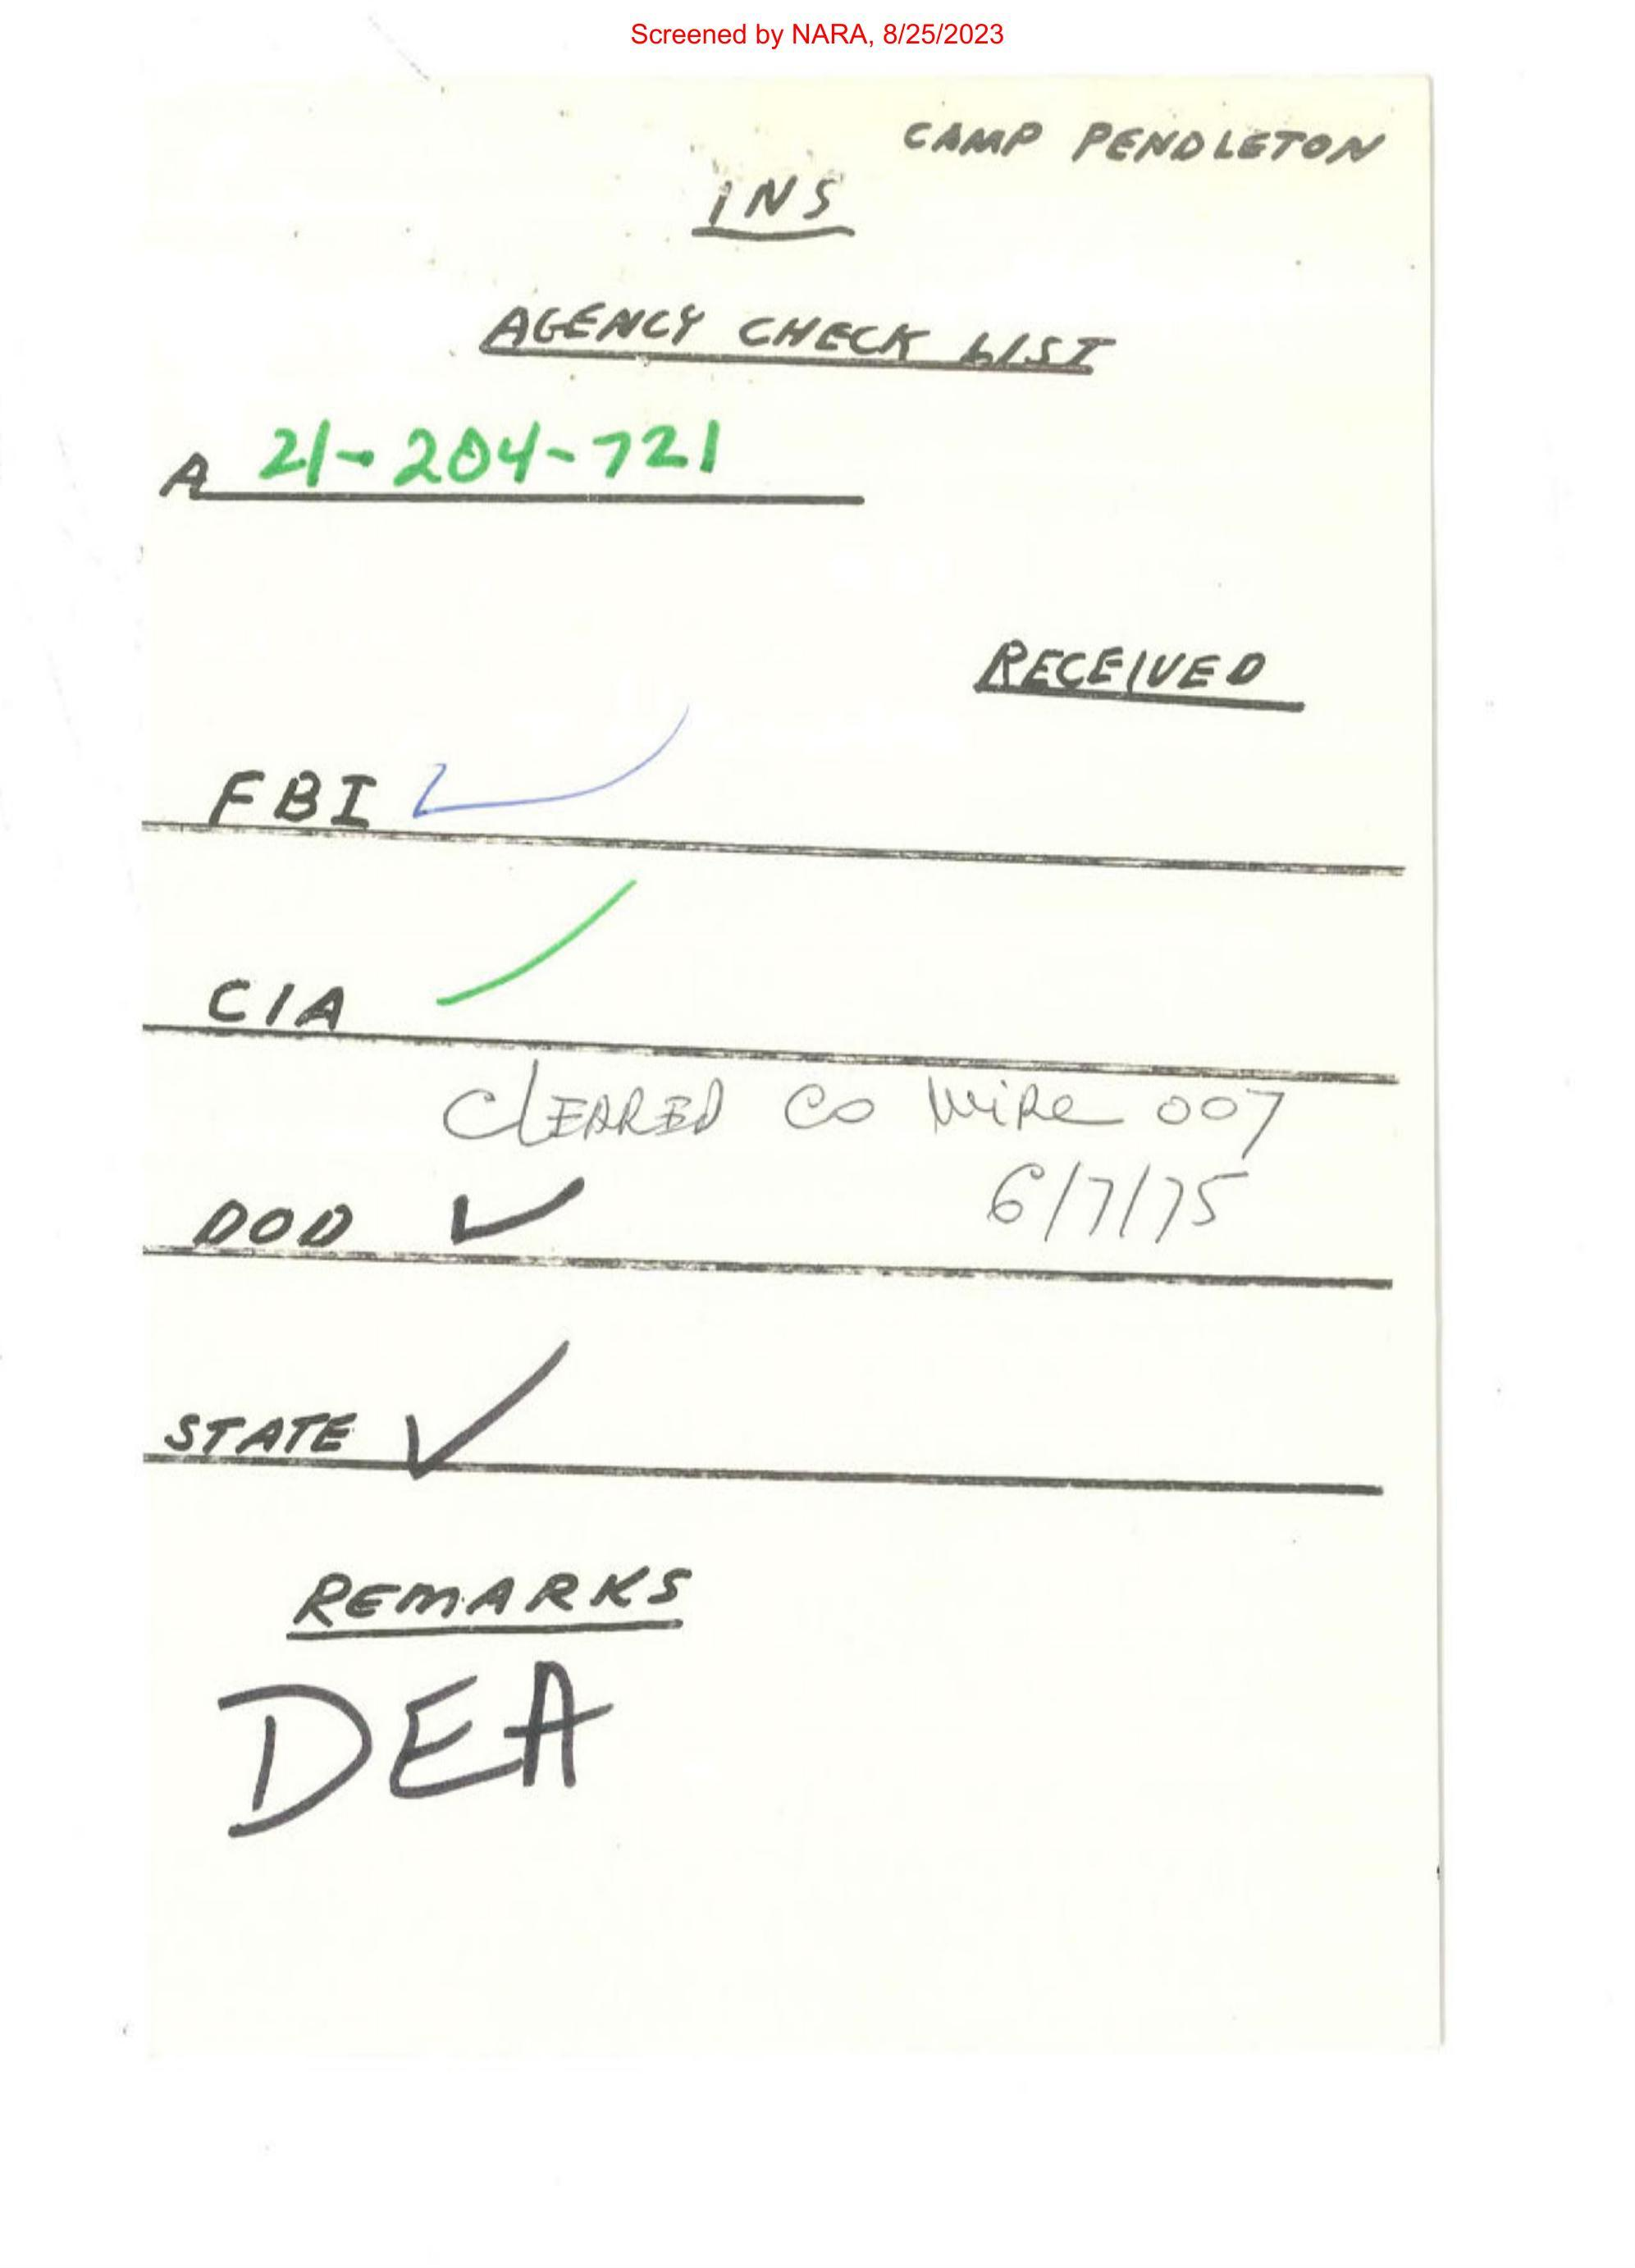 Screened by NARA, 8/25/2023
CAMP PENDLETON
INS
AGENCY CHECK LIST
A 21-204-721
RECEIVED
FBI ✓
CIA ✓
CLEARED CO WIRE 007
DOD ✓ 6/7/75
STATE ✓
REMARKS
DEA